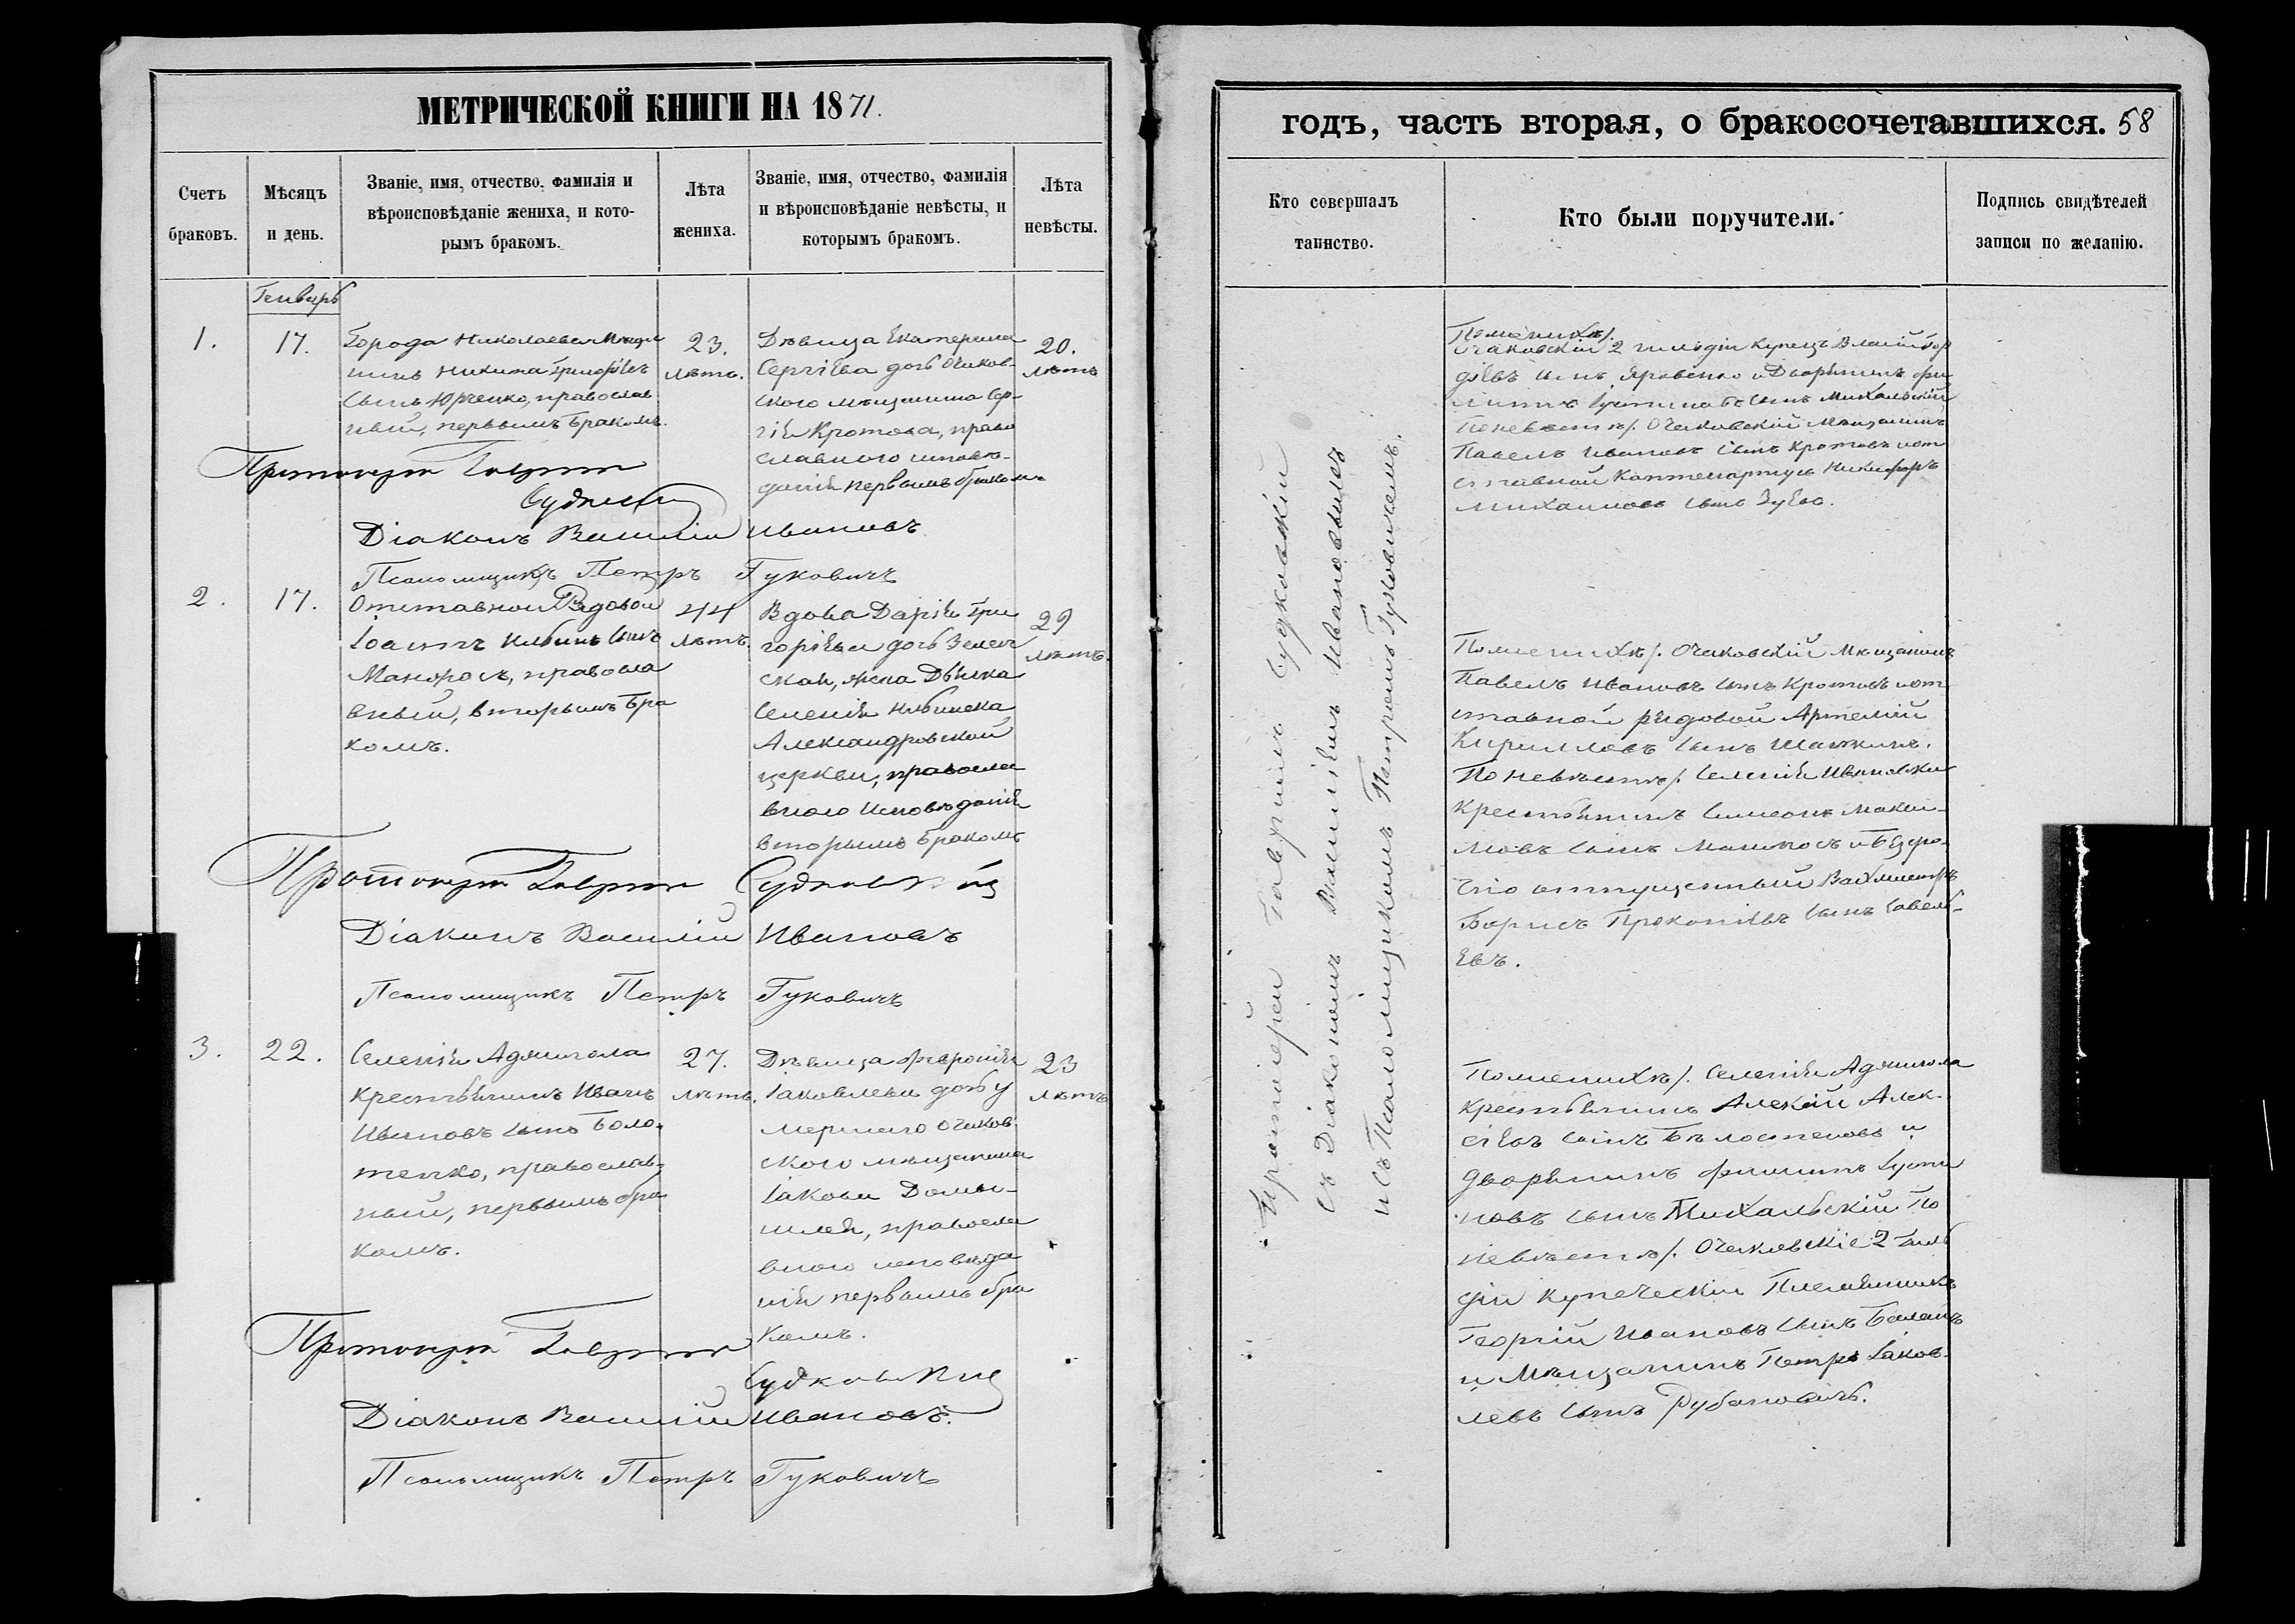 МЕТРИЧЕСКОЙ КНИГИ НА 1871.
Счетъ браковъ.
Мѣсяцъ и день.
Званіе, имя, отчество, фамилія и
вѣроисповѣданіе жениха, и кото-
рымъ бракомъ.
Лѣта жениха.
Званіе, имя, отчество, фамилія
и вѣроисповѣданіе невѣсты, и
которымъ бракомъ.
Лѣта невѣсты.
Генварь
1.
17.
Города Николаева Мѣща
нинъ Никита
сынъ Юрченко, православ
ный, первымъ бракомъ.
23.
лѣтъ.
Дѣвица Екатерина
Сергіева дочь Очаков-
ского мѣщанина Сер-
гія Кротова, право
славного исповѣ-
данія первымъ бракомъ
20.
лѣтъ
Протоіерей Гавріилъ
Судковскій
Діаконъ Василій Ивановъ
Псаломщикъ Петръ Гуковичъ
2.
17.
Отставной Рядовой
Іоаннъ Ильинъ сынъ
правосла
вный, вторымъ бра
комъ.
44
лѣтъ.
Вдова Дарія Гри
горіева дочь Зелен
ская, жена Дьячка
Селенія Ильинка
Александровской
церкви, правосла
вного исповѣданія
вторымъ бракомъ
29
лѣтъ.
Протоіерей Гавріилъ Судковскій
Діаконъ Василій Ивановъ
Псаломщикъ Петръ Гуковичъ
3.
22.
Селенія Аджигола
крестьянинъ Иванъ
Ивановъ сынъ Боло-
тенко, православ-
ный, первымъ бра
комъ.
27.
лѣтъ.
Дѣвица Февронія
Іаковлева дочь у
мершего Очаков
ского мѣщанина
Іакова
правосла
вного исповѣда
нія первымъ бра
комъ.
23
лѣтъ
Протоіерей Гавріилъ
Судковскій
Діаконъ Василій Ивановъ.
Псаломщикъ Петръ Гуковичъ
годъ, часть вторая, о бракосочетавшихся. 58
Кто совершалъ
таинство.
Кто были поручители.
Подпись свидѣтелей
записи по желанію.
Протоіерей Гавріилъ Судковскій
съ Діакономъ Василіемъ Ивановымъ
и съ Псаломщикомъ Петромъ Гуковичемъ.
По женихѣ/.
Очаковскій 2 гильдіи Купецъ
сынъ Яровенко и Дворянинъ Фи
липпъ Іустиновъ сынъ Михальскій
По невѣстѣ/. Очаковскій Мѣщанинъ
Павелъ Ивановъ сынъ Кротовъ и от
ставной Каптенармусъ Никифоръ
Михаиловъ сынъ Зуевъ.
По женихѣ/. Очаковскій Мѣщанинъ
Павелъ Ивановъ сынъ Кротовъ и от
ставной рядовой Артемій
Кирилловъ сынъ
По невѣстѣ/. Селенія Ивановки
крестьянинъ Симеонъ Макси-
мовъ сынъ и безсро-
чно отпущенный Вахмистръ
Борисъ Прокопіевъ сынъ Савель-
евъ.
По женихѣ/. Селенія Аджигола
крестьянинъ Алексій Алек-
сіевъ сынъ Бѣлостеновъ и
дворянинъ Филиппъ Іусти
новъ сынъ Михальскій По
невѣстѣ/. Очаковскіе 2 Гиль
діи купеческій Племянникъ
Георгій Ивановъ сынъ
и Мѣщанинъ Петръ Іаков-
левъ сынъ Рубановичъ.